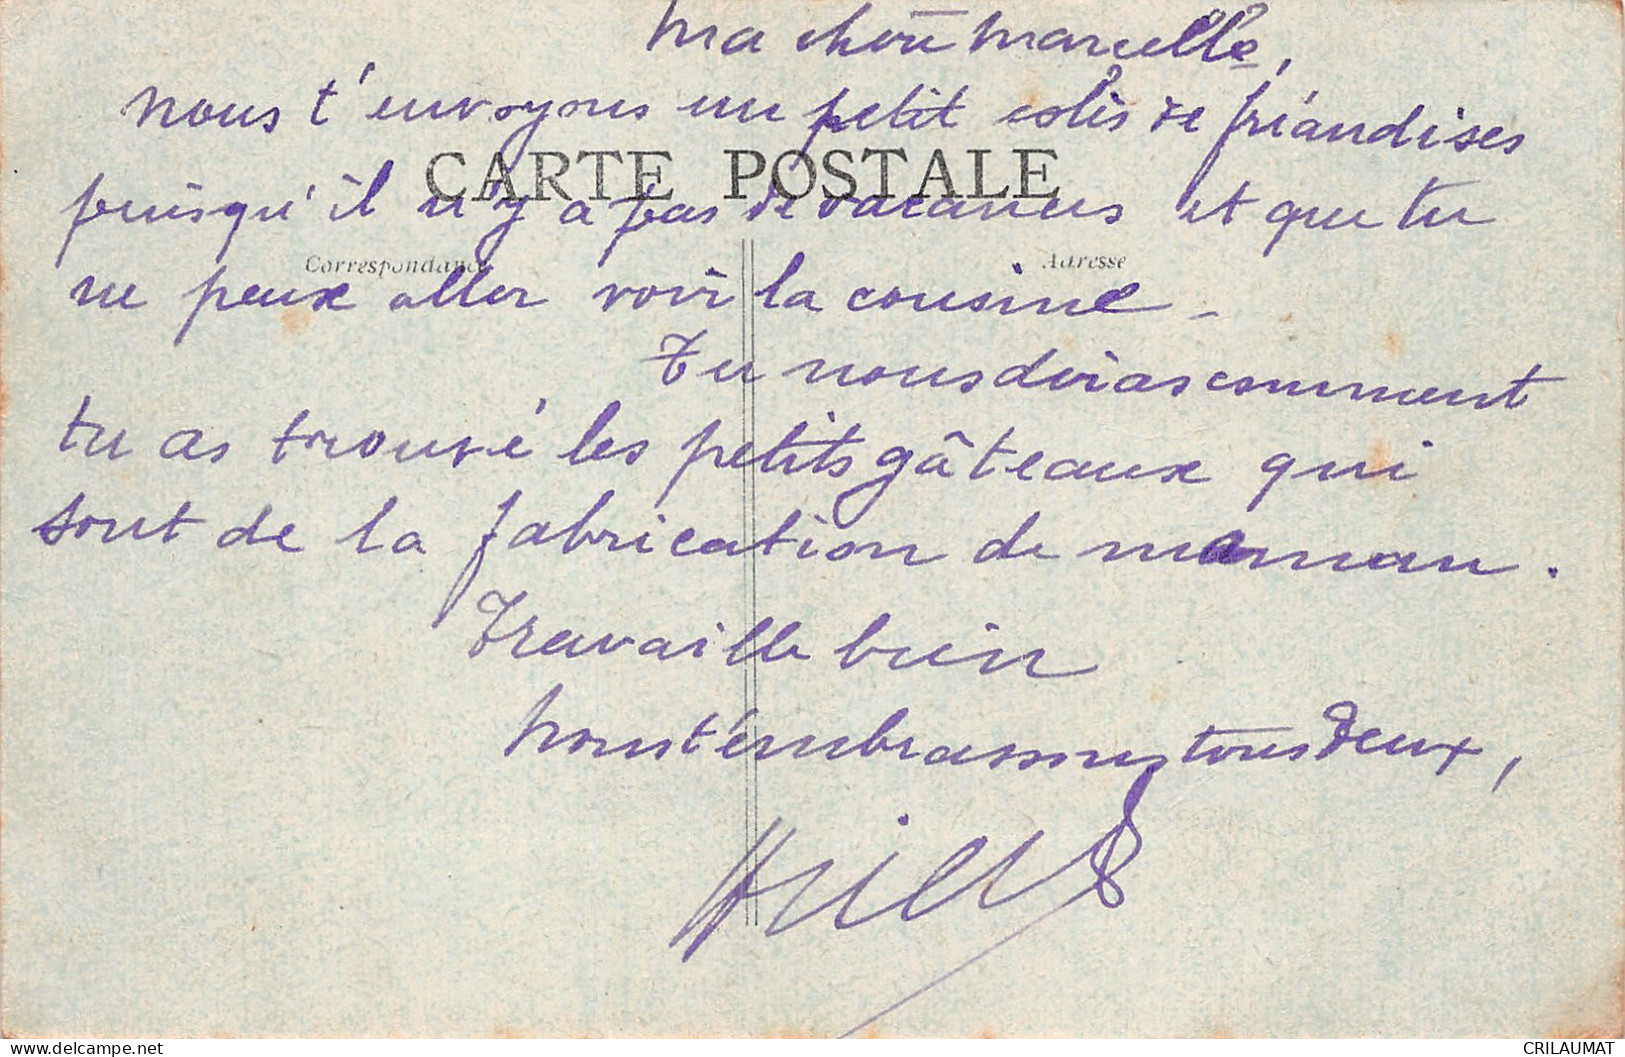 Ma chère Marcelle,
nous t'envoyons un petit colis de friandises
CARTE POSTALE
puisqu'il n'y a pas de vacances et que tu
Correspondance
Adresse
ne peux aller voir la cousine -
Tu nous diras comment
tu as trouvé les petits gâteaux qui
sont de la fabrication de maman.
Travaille bien
nous t'embrassons tous deux,
CRILAUMAT
www.delcampe.net